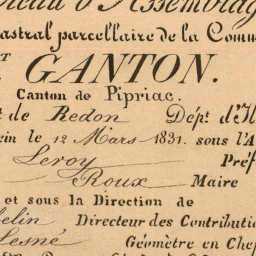 d'Assemblag
astral parcellaire de la Comm
T GANTON.
Canton de Pipriac.
t de Redon Dépt d'Il
in le 12 Mars 1831. sous l'A
Leroy Préf
Roux Maire
et sous la Direction de
belin Directeur des Contributi
Lesné Géomètre en Chef